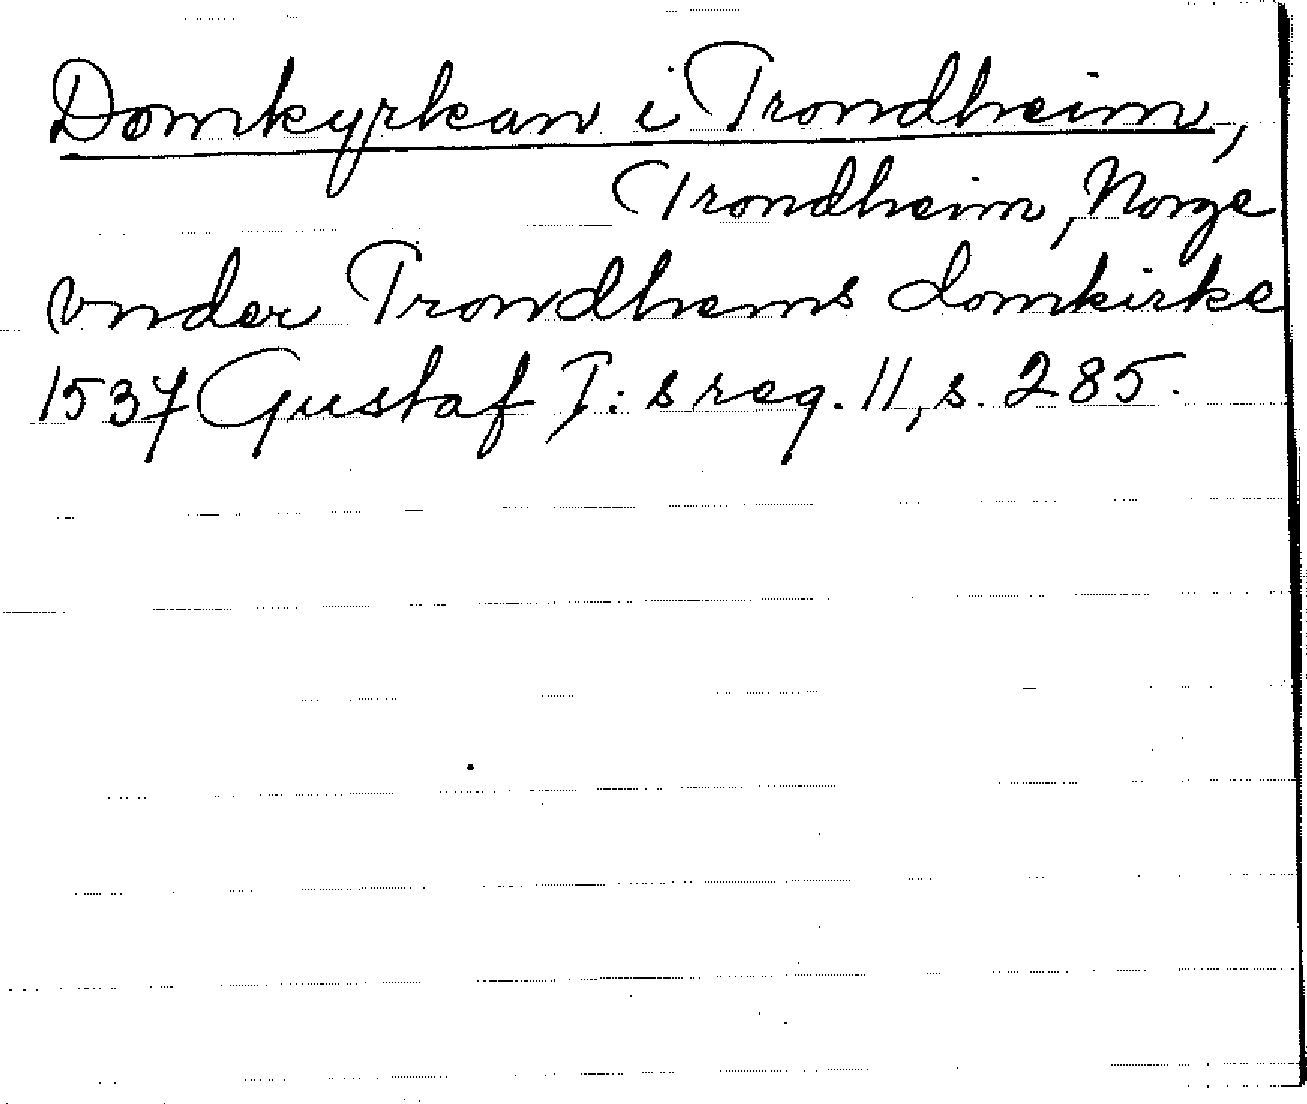 Domkyrkan i Trondheim,
Trondheim, Norge
vnder Trondhems domkirke
1537 Gustaf I:s reg. 11, s. 285.